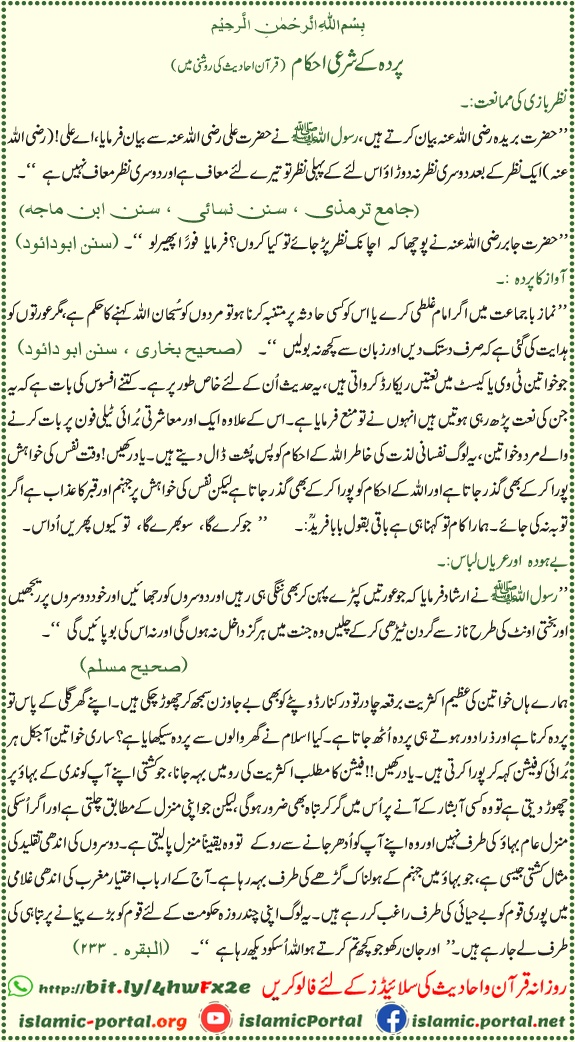 بِسْمِ اللهِ الرَّحْمٰنِ الرَّحِيْمِ
پردہ کے شرعی احکام (قرآن احادیث کی روشنی میں)
نظر بازی کی ممانعت:۔
’’حضرت بریدہ رضی اللہ عنہ بیان کرتے ہیں، رسول اللہ ﷺ نے حضرت علی رضی اللہ عنہ سے بیان فرمایا، اے علی! (رضی اللہ
عنہ) ایک نظر کے بعد دوسری نظر نہ دوڑاؤ اس لئے کے پہلی نظر تو تیرے لئے معاف ہے اور دوسری نظر معاف نہیں ہے ‘‘۔
(جامع ترمذی ، سنن نسائی ، سنن ابن ماجہ)
’’حضرت جابر رضی اللہ عنہ نے پوچھا کہ اچانک نظر پڑ جائے تو کیا کروں؟ فرمایا فوراً پھیر لو ‘‘۔ (سنن ابو دائود)
آواز کا پردہ :۔
’’نماز با جماعت میں اگر امام غلطی کرے یا اس کو کسی حادثہ پر متنبہ کرنا ہو تو مردوں کو سُبحان اللہ کہنے کا حکم ہے، مگر عورتوں کو
ہدایت کی گئی ہے کہ صرف دستک دیں اور زبان سے کچھ نہ بولیں ‘‘۔ (صحیح بخاری ، سنن ابو دائود)
جو خواتین ٹی وی یا کیسٹ میں نعتیں ریکارڈ کرواتی ہیں، یہ حدیث اُن کے لئے خاص طور پر ہے۔ کتنے افسوس کی بات ہے کہ یہ
جن کی نعت پڑھ رہی ہوتیں ہیں انہوں نے تو منع فرمایا ہے۔ اس کے علاوہ ایک اور معاشرتی بُرائی ٹیلی فون پر بات کرنے
والے مرد و خواتین، یہ لوگ نفسانی لذت کی خاطر اللہ کے احکام کو پس پشت ڈال دیتے ہیں۔ یاد رکھیں! وقت نفس کی خواہش
پورا کر کے بھی گذر جاتا ہے اور اللہ کے احکام کو پورا کر کے بھی گذر جاتا ہے لیکن نفس کی خواہش پر جہنم اور قبر کا عذاب ہے اگر
توبہ نہ کی جائے۔ ہمارا کام تو کہنا ہی ہے باقی بقول بابا فریدؒ:۔ ’’ جو کرے گا، سو بھرے گا، تو کیوں پھریں اُداس۔
بے ہودہ اور عریاں لباس:۔
’’رسول اللہ ﷺ نے ارشاد فرمایا کہ جو عورتیں کپڑے پہن کر بھی ننگی ہی رہیں اور دوسروں کو رجھائیں اور خود دوسروں پر ریجھیں
اور بختی اونٹ کی طرح ناز سے گردن ٹیڑھی کر کے چلیں وہ جنت میں ہرگز داخل نہ ہوں گی اور نہ اس کی بو پائیں گی ‘‘۔
(صحیح مسلم)
ہمارے ہاں خواتین کی عظیم اکثریت برقعہ چادر تو درکنار ڈوپٹے کو بھی بے جا وزن سمجھ کر چھوڑ چکی ہیں۔ اپنے گھر گلی کے پاس تو
پردہ کرنا ہے اور ذرا دور ہوتے ہی پردہ اُٹھ جاتا ہے۔ کیا اسلام نے گھر والوں سے پردہ سیکھایا ہے؟ ساری خواتین آجکل ہر
بُرائی کو فیشن کہہ کر پورا کرتی ہیں۔ یاد رکھیں!! فیشن کا مطلب اکثریت کی رو میں بہہ جانا، جو کشتی اپنے آپ کو ندی کے بہاؤ پر
چھوڑ دیتی ہے تو وہ کسی آبشار کے آنے پر اُس میں گر کر تباہ بھی ضرور ہو گی، لیکن جو اپنی منزل کے مطابق چلتی ہے اور اگر اُسکی
منزل عام بہاؤ کی طرف نہیں اور وہ اپنے آپ کو اُدھر جانے سے روکے تو وہ یقیناً منزل پا لیتی ہے۔ دوسروں کی اندھی تقلید کی
مثال کشتی جیسی ہے، جو بہاؤ میں جہنم کے ہولناک گڑھے کی طرف بہہ رہا ہے۔ آج کے ارباب اختیار مغرب کی اندھی غلامی
میں پوری قوم کو بے حیائی کی طرف راغب کر رہے ہیں۔ یہ لوگ اپنی چند روزہ حکومت کے لئے قوم کو بڑے پیمانے پر تباہی کی
طرف لے جا رہے ہیں۔ ’’ اور جان رکھو جو کچھ تم کرتے ہو اللہ اُسکو دیکھ رہا ہے ‘‘۔ (البقرہ ۔ ۲۳۳)
روزانہ قرآن و احادیث کی سلائیڈز کے لئے فالو کریں http://bit.ly/4hwFx2e
islamic-portal.org islamicPortal islamic.portal.net